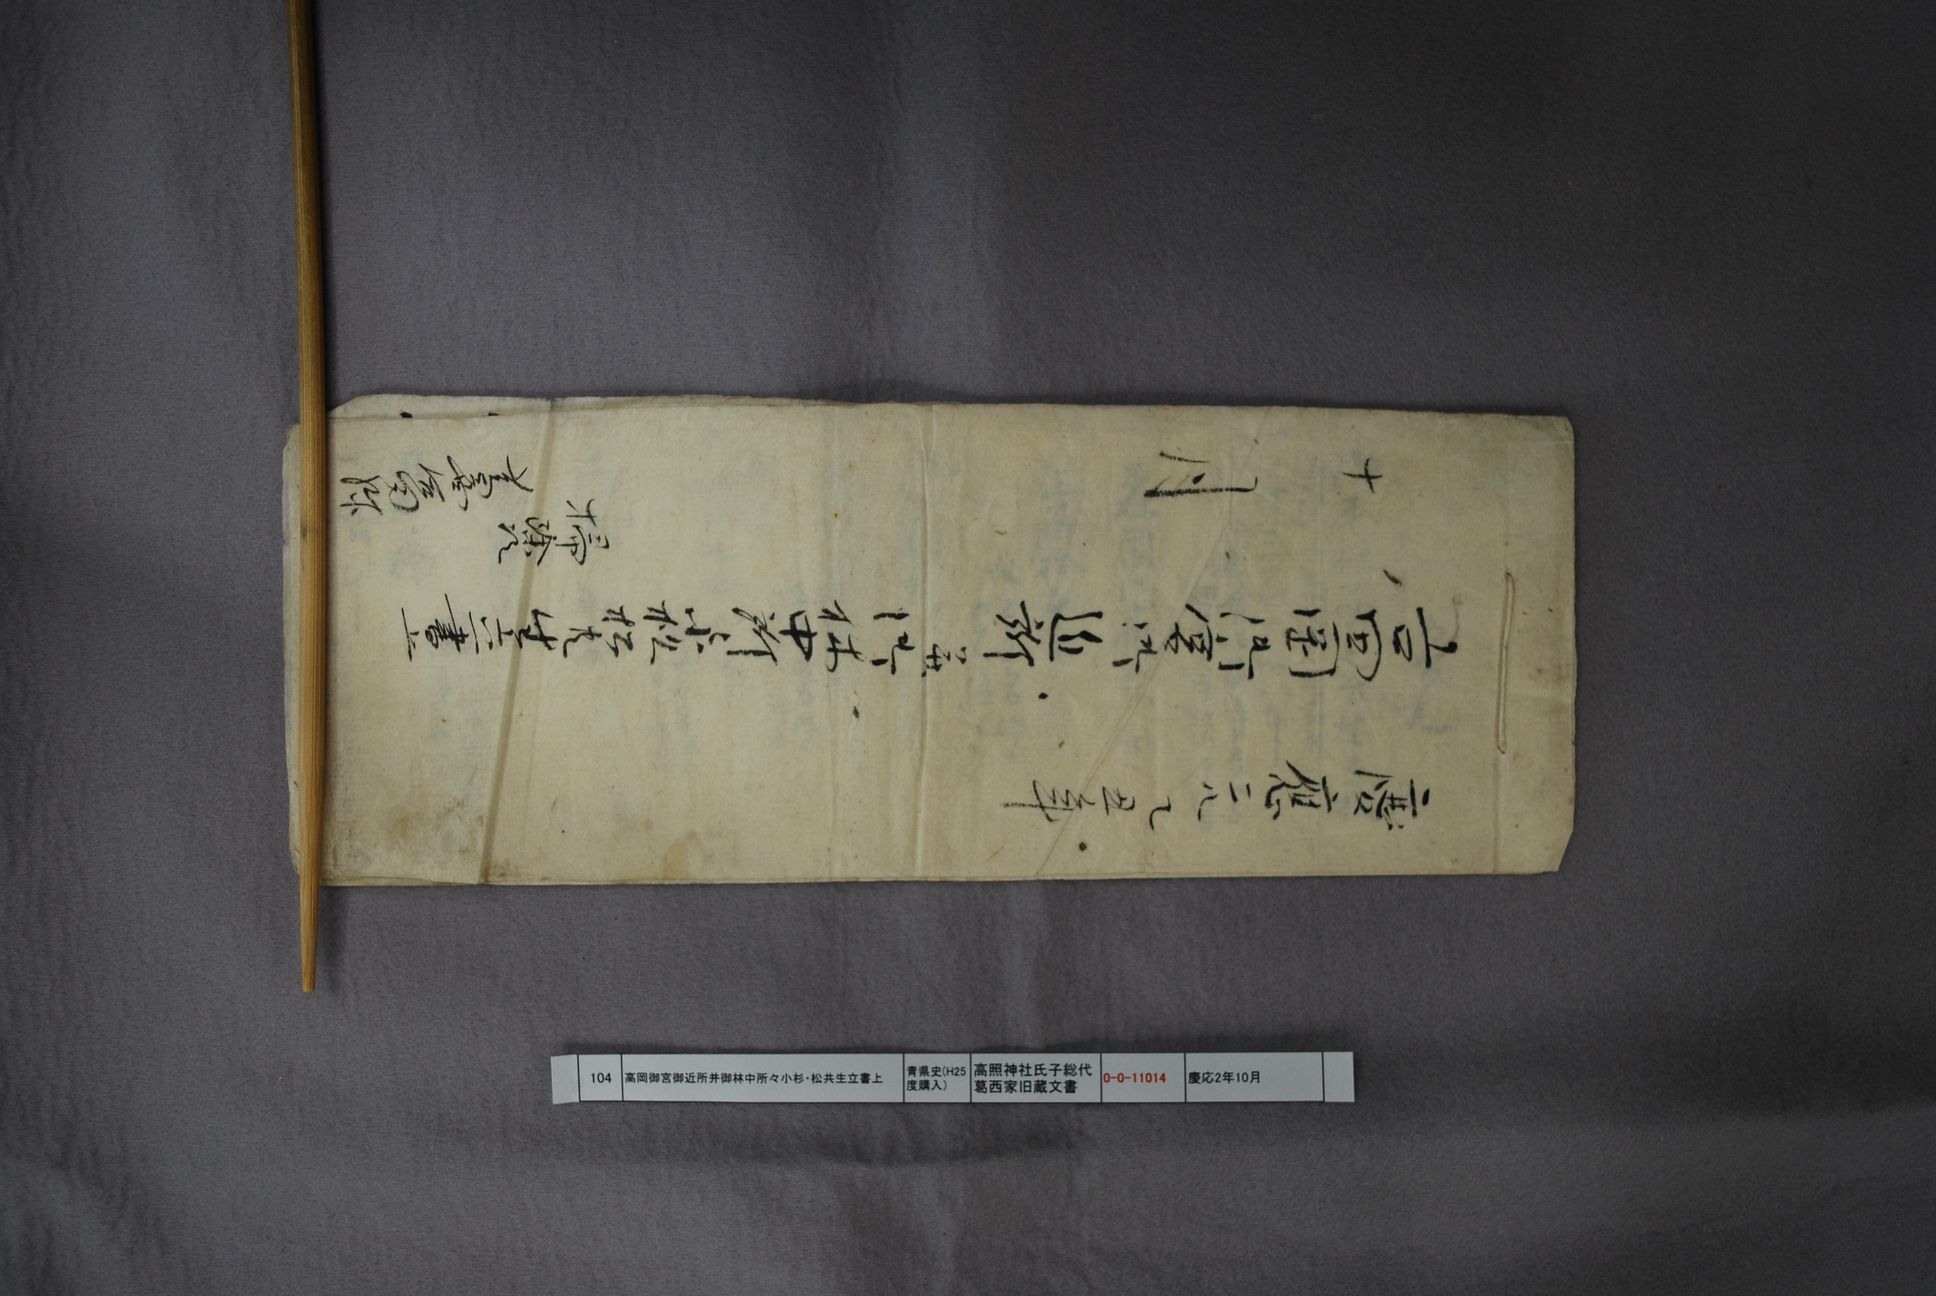 慶應元乙丑年
高岡御宮御近所并御林中所々小杉松共生立書上
十月
掃除
104
高岡御宮御近所并御林中所々小杉・松共生立書上
青県史(H25
度購入)
高照神社氏子総代
葛西家旧蔵文書
0-0-11014
慶応2年10月